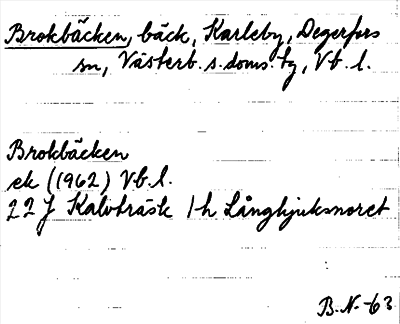 Brokbäcken, bäck, Karleby, Degerfors
sn, Västerb. s. doms. tg, Vb. l.
Brokbäcken
ek (1962) Vb. l.
22 J Kalvträsk 1 h Långbjuksnoret
B.N.-63